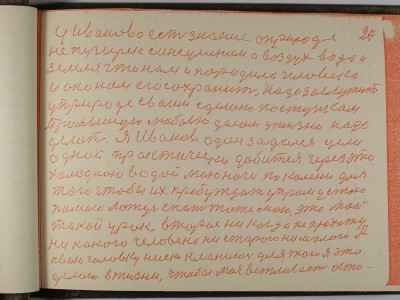 У Иванова есть знание о природе 27
не пузырек с инсулином а воздух вода и
земля что нам и породила человека
и она нам его сохранит, надо заслужить
у природе своим одним поступком
проявленую любовью делом у жизни надо
делать. Я Иванов один задался целю
одной практически добится через это
холодною водой мою ноги по колени для
того чтобы их пробуждать утром и устою
помою ложусь спать тоже мою, это мой
такой урок, второе никогда не прохожу
ни какого человека ни старого ни малого Я
свою головку низко кланюсь для тово я это
делаю в жизни, чтобы моя вежливость оста-